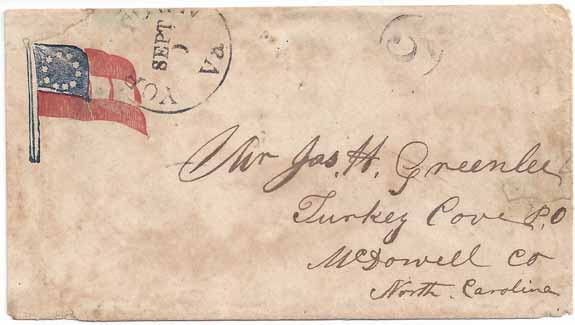 YORKTOWN Va
SEPT
5
Mr Jas. H. Greenlee
Turkey Cove P.O
McDowell Co
North Carolina